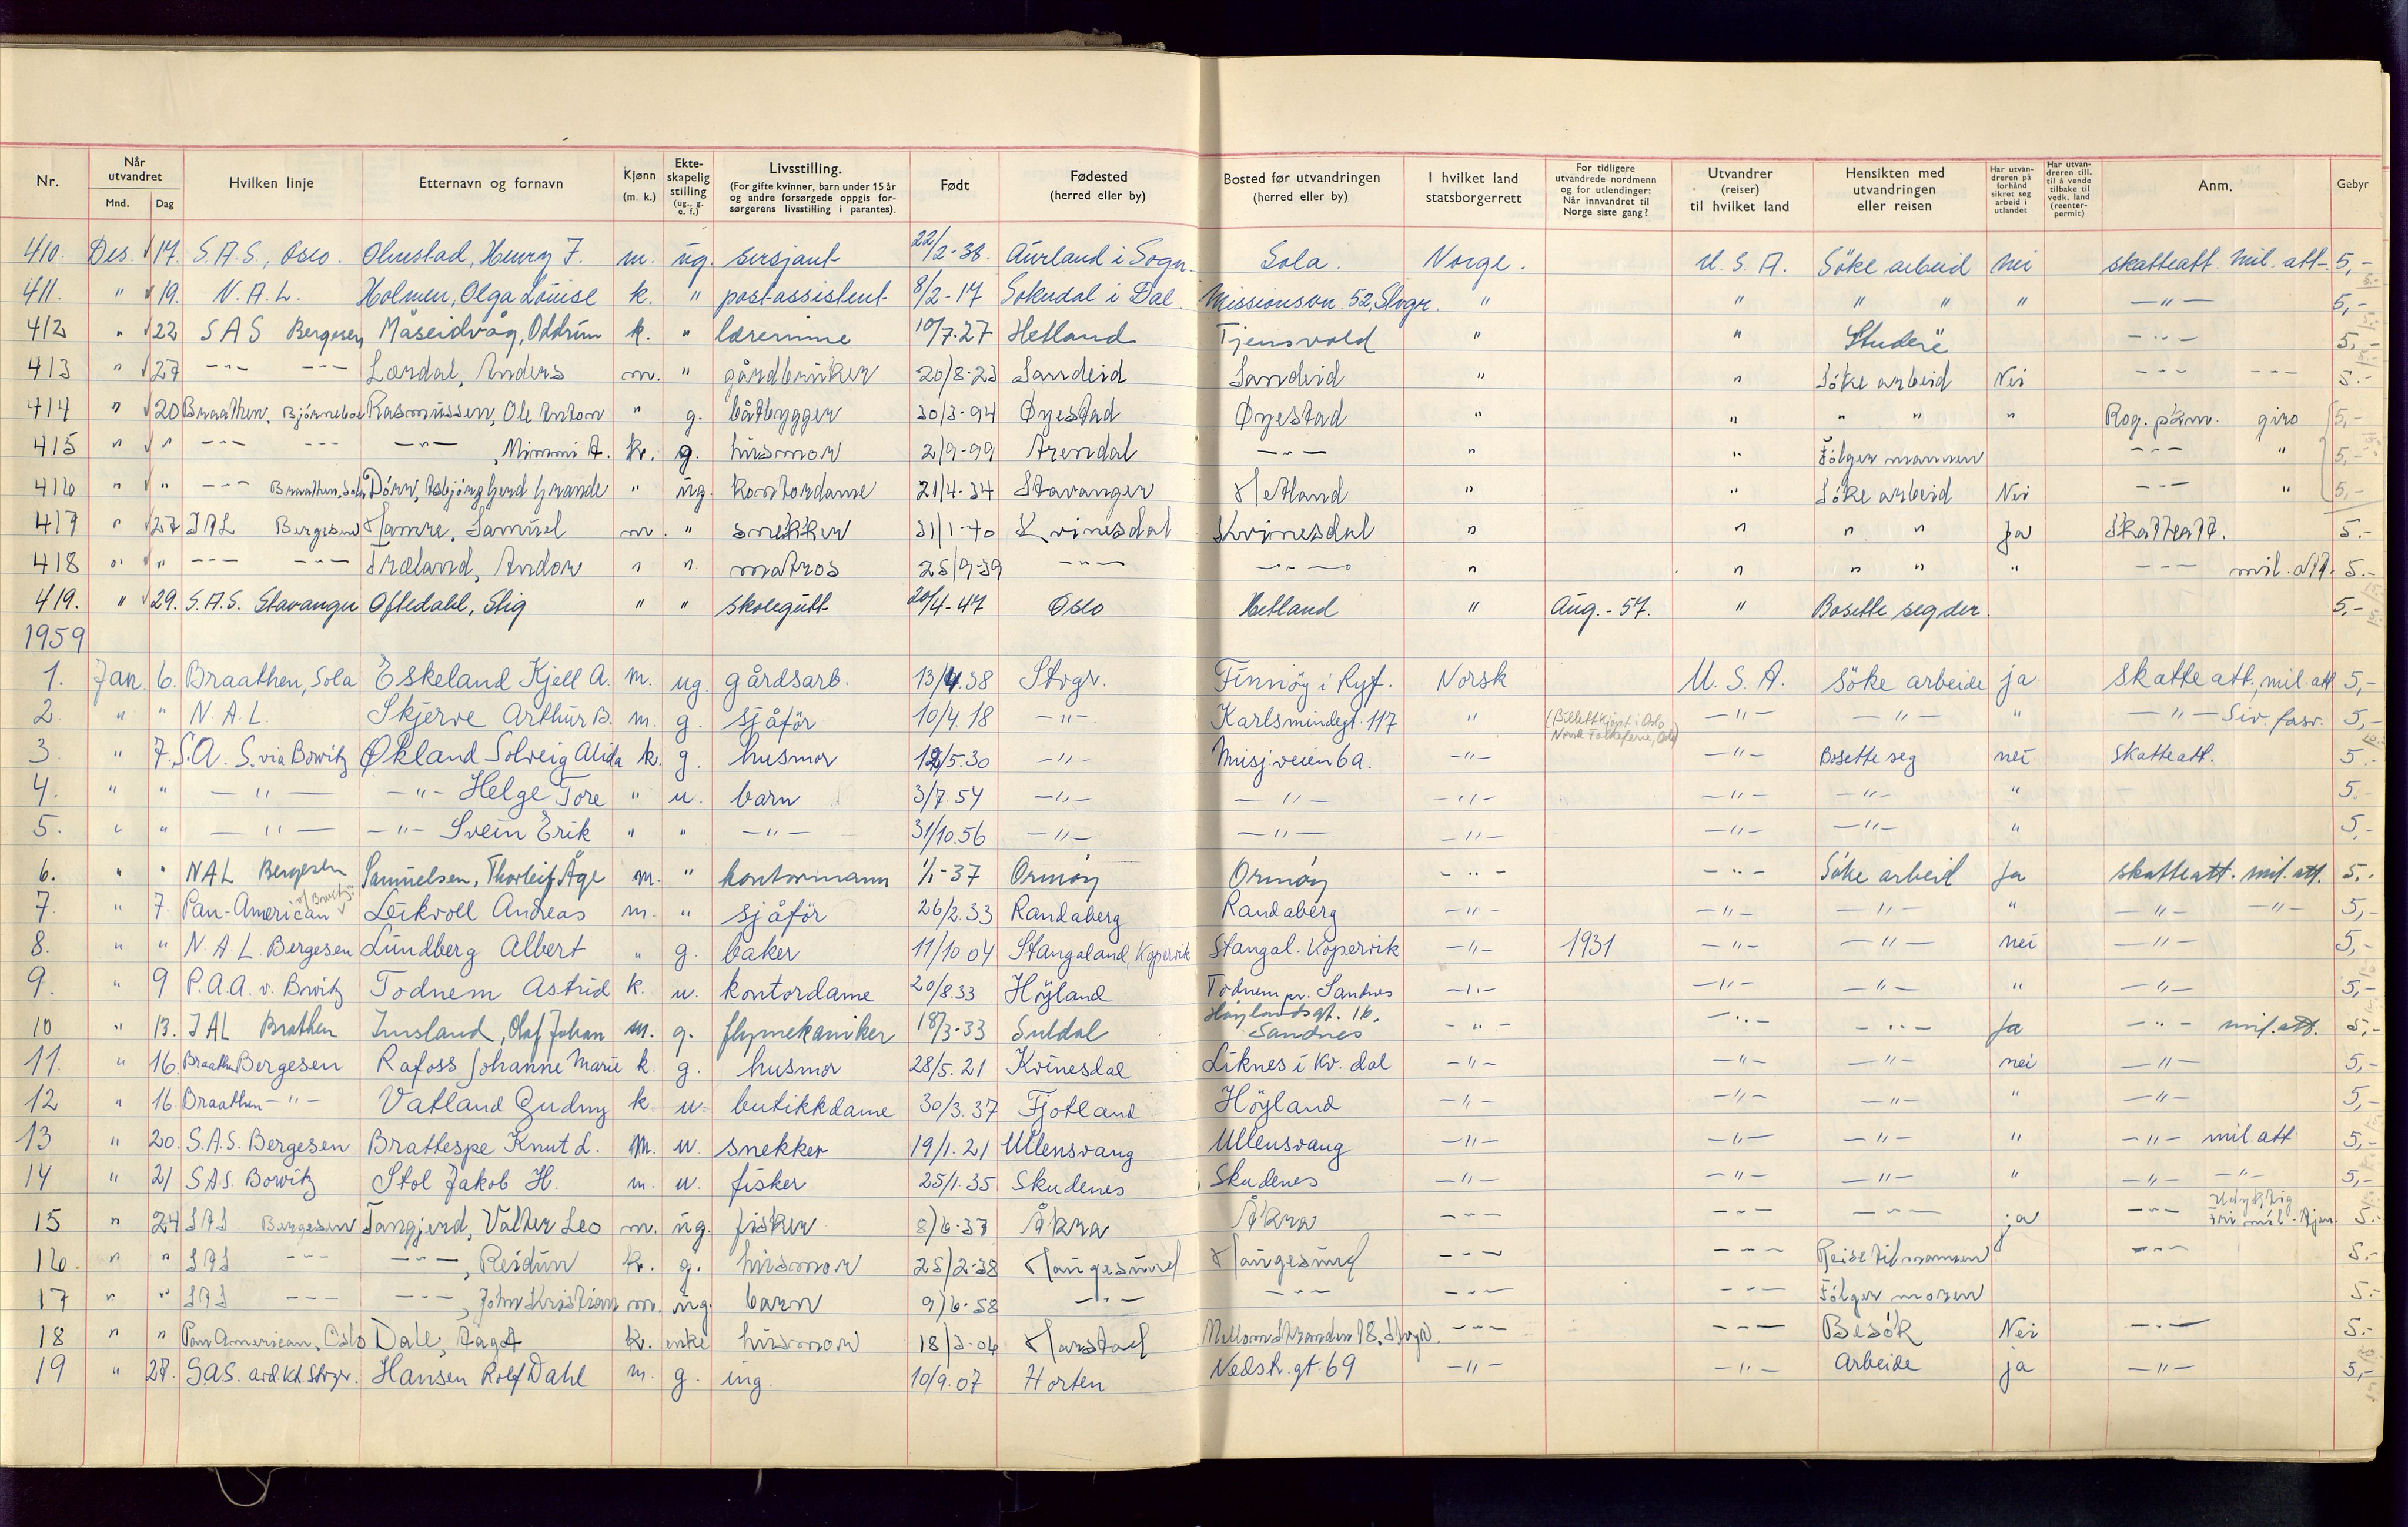 Nr. | Når utvandret Mnd. Dag | Hvilken linje | Etternavn og fornavn | Kjønn (m. k.) | Ekteskapelig stilling (ug., g. e. f.) | Livsstilling. (For gifte kvinner, barn under 15 år og andre forsørgede oppgis forsørgerens livsstilling i parantes). | Født | Fødested (herred eller by) | Bosted før utvandringen (herred eller by) | I hvilket land statsborgerrett | For tidligere utvandrede nordmenn og for utlendinger: Når innvandret til Norge siste gang? | Utvandrer (reiser) til hvilket land | Hensikten med utvandringen eller reisen | Har utvandreren på forhånd sikret seg arbeid i utlandet | Har utvandreren till. til å vende tilbake til vedk. land (reenterpermit) | Anm. | Gebyr
410. Des. 17. S.A.S., Oslo. Olnestad, Henry J. m. ug. sersjant 22/2-38. Aurland i Sogn. Sola. Norge. U.S.A. Söke arbeid nei skatteatt. mil. att. 5,-
411. " 19. N.A.L. Holmen, Olga Louise k. " post-assistent 8/2-17 Sokndal i Dal. Missionsvn. 52, Stvgr. " " " " " -"- 5,-
412 " 22 SAS Bergesen Måseidvåg, Oddrun k. " lærerinne 10/7.27 Hetland Tjensvold " " Studere -"- 5,-
413 " 27 -"- -"- Lærdal, Anders m. " gårdbruker 20/8-23 Sandeid Sandeid " " Söke arbeid Nei -"- -"- 5.-
414 " 20 Braathen, Björneboe Rasmussen, Ole Anton " g. båtbygger 30/3-94 Øyestad Øyestad " " " " " Rog. p.km. giro 5,-
415 " " -"- -"- -"-, Mimmi A. k. g. husmor 2/9-99 Arendal -"- " " Fölger mannen -"- " 5,-
416 " " -"- Braathen, Sola Dörr, Asbjörg Gerd Grande " ug. kontordame 21/4-34 Stavanger Hetland " " Söke arbeid Nei -"- " 5,-
417 " 27 SAL Bergesen Hamre, Samuel m. " snekker 31/1-40 Kvinesdal Kvinesdal " " " " Ja Skatteatt. 5.-
418 " " -"- -"- Træland, Andor " " matros 25/9-39 -"- -"- " " " " " -"- mil. att. 5.-
419. " 29. S.A.S. Stavanger Oftedahl, Stig " " skolegutt 20/4-47 Oslo Hetland " Aug.-57. " Bosette seg der. 5,-
1959
1. Jan. 6. Braathen, Sola Eskeland Kjell A. m. ug. gårdsarb. 13/4.38 Stvgr. Finnöy i Ryf. Norsk U.S.A. Söke arbeide ja Skatteatt., mil. att 5,-
2. " " N.A.L. Skjerve Arthur B. m. g. sjåför 10/4.18 -"- Karlsmindegt. 117 " (Billett kjöpt i Oslo Norsk Folkeferie, Oslo) -"- -"- " -"- Siv. forsv. 5,-
3. " 7. S.A.S. via Bowitz Økland Solveig Alida k. g. husmor 12/5.30 -"- Misj.veien 6a. -"- -"- Bosette seg nei Skatteatt. 5.-
4. " " -"- -"- Helge Tore " u. barn 3/7.54 -"- -"- -"- -"- -"- " 5.-
5. " " -"- -"- Svein Erik " " -"- 31/10.56 -"- -"- -"- -"- -"- " 5.-
6. " " NAL Bergesen Samuelsen, Thorleif Åge m. " kontormann 1/1-37 Ormöy Ormöy -"- -"- Söke arbeid Ja skatteatt. mil. att. 5.-
7. " 7 Pan-American v/Bowitz Leikvoll Andreas m. " sjåför 26/2.33 Randaberg Randaberg -"- -"- -"- " -"- -"- 5,-
8. " " N.A.L. Bergesen Lundberg Albert " g. baker 11/10 04 Stangaland, Kopervik Stangal. Kopervik -"- 1931 -"- -"- nei -"- 5,-
9. " 9 P.A.A. v. Bowitz Todnem Astrid k. u. kontordame 20/8.33 Höyland Todnem pr. Sandnes -"- -"- -"- " -"- 5,-
10 " 13. SAL Brathen Imsland, Olaf Johan m. g. flymekaniker 18/3-33 Suldal Höylandsgt. 16. Sandnes -"- -"- -"- Ja -"- mil. att. 5,-
11. " 16. Braathen Bergesen Rafoss Johanne Marie k. g. husmor 28/5.21 Kvinesdal Liknes i Kv. dal -"- -"- -"- nei -"- 5,-
12 " 16. Braathen -"- Vatland Gudny k. u. butikkdame 30/3.37 Fjotland Höyland -"- -"- -"- " -"- 5,-
13 " 20. S.A.S. Bergesen Brattespe Knut L. m. u. snekker 19/1.21 Ullensvang Ullensvang -"- -"- -"- " -"- mil. att 5,-
14 " 21 SAS. Bowitz Stol Jakob H. m. u. fisker 25/1.35 Skudenes Skudenes -"- -"- -"- " -"- -"- 5,-
15 " 24 SAS Bergesen Tangjerd, Valter Leo m. ug. fisker 8/6-37 Åkra Åkra -"- -"- -"- ja -"- Udyktig mil. tjen. 5.-
16. " " SAS -"- -"-, Reidun k. g. husmor 25/2-38 Haugesund Haugesund -"- -"- Reise til mannen -"- 5.-
17 " " SAS -"- -"-, John Kristian m. ug. barn 9/6-58 -"- -"- -"- -"- Fölger moren 5.-
18 " " Pan American, Oslo Dale, Aagot k. enke husmor 18/3-04 Harstad Mellomstranden 18, Stvgr. -"- -"- Besök Nei -"- 5.-
19 " 27. S.A.S. avd.kt. Stvgr. Hansen Rolf Dahl m. g. ing. 10/9.07 Horten Nedstr.gt. 69 -"- -"- Arbeide ja -"- 5,-